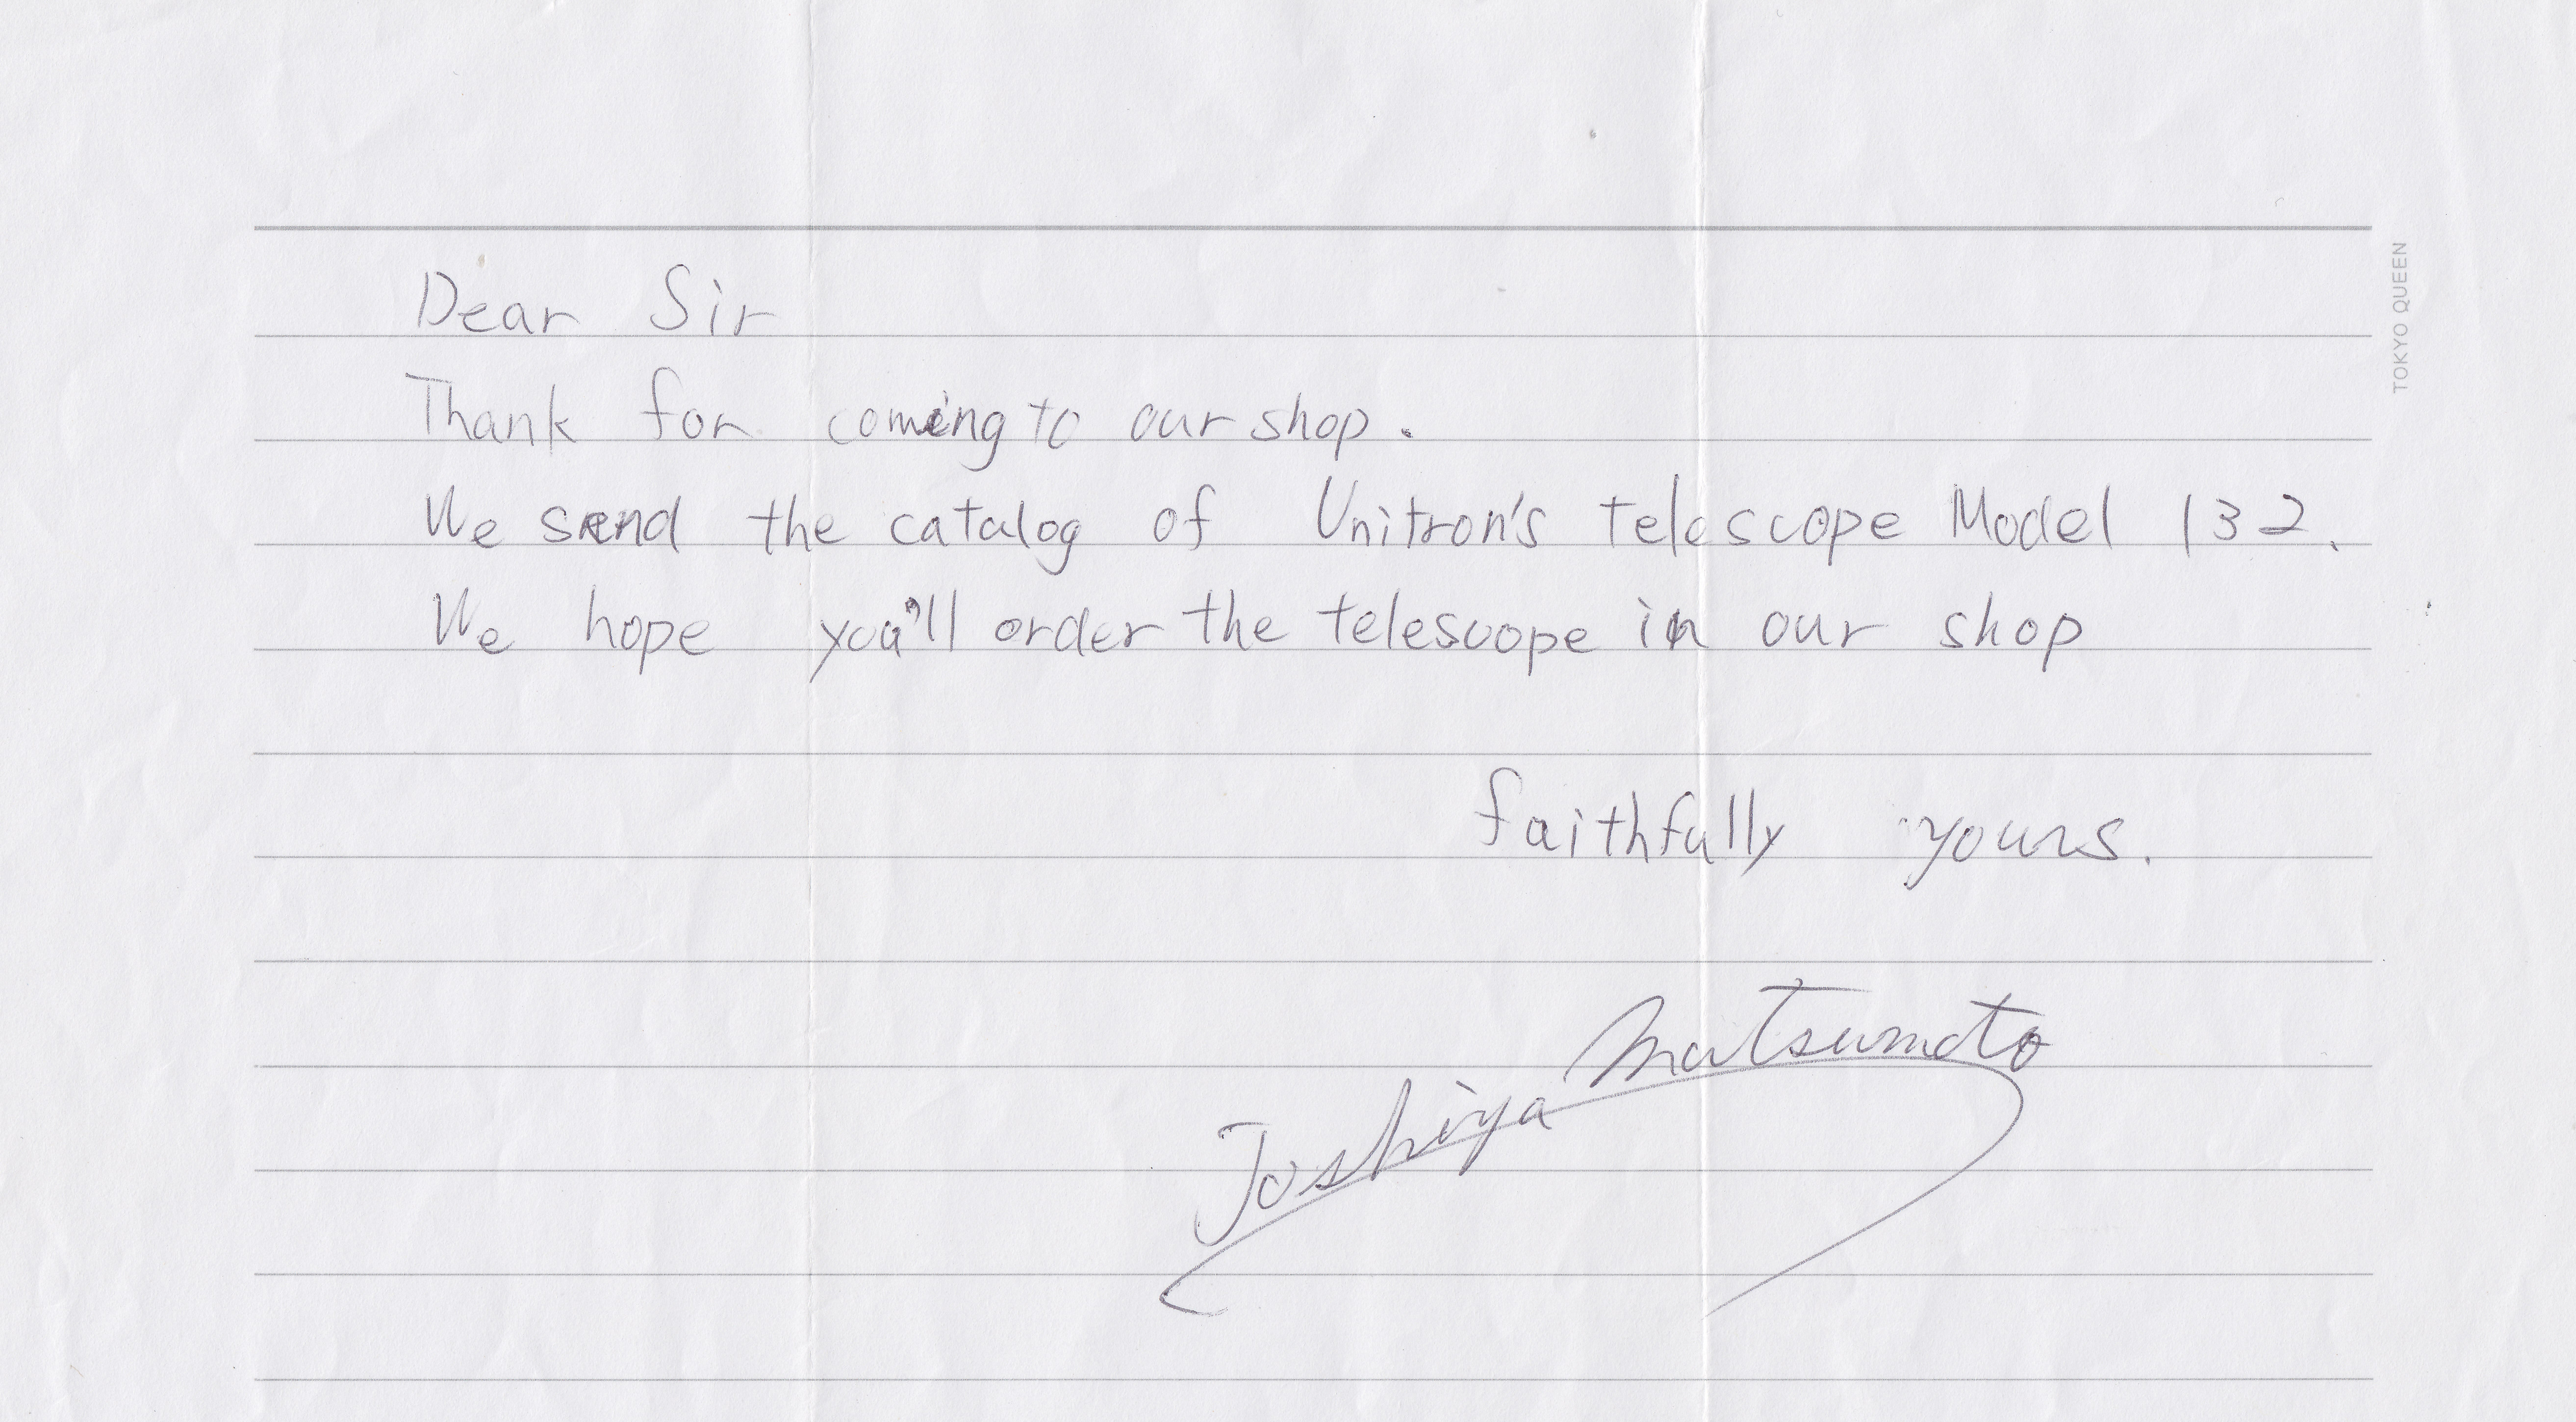 Dear Sir
Thank for coming to our shop.
We send the catalog of Unitron's telescope Model 132.
We hope you'll order the telescope in our shop
faithfully yours.
Toshiya Matsumoto
TOKYO QUEEN